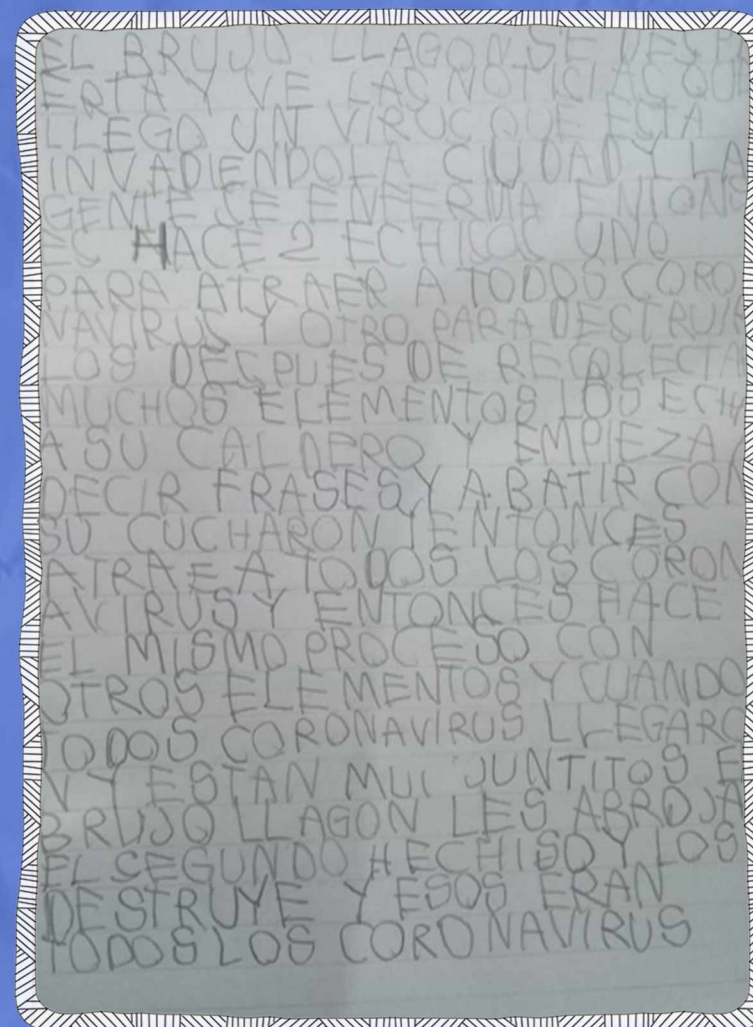 EL BRUJO LLAGON SE DESP
ERTA Y VE LAS NOTICIAS QUE
LLEGO UN VIRUC QUE ECTA
INVADIENDOLA CIUDAD Y LA
GENTE SE ENFERMA ENTONS
EC HACE 2 ECHICOC UNO
PARA ATRAER A TODOS CORO
NAVIRUS Y OTRO PARA DECTRUIR
LOS DECPUES DE RECOLECTA
MUCHOS ELEMENTOS LOS ECHA
A SU CALDERO Y EMPIEZA
DECIR FRASES Y A BATIR CON
SU CUCHARON IENTONCES
ATRAE A TODOS LOS CORON
AVIRUS Y ENTONCES HACE
EL MISMO PROCESO CON
OTROS ELEMENTOS Y CUANDO
TODOS CORONAVIRUS LLEGARO
N Y ESTAN MUI JUNTITOS E
BRUJO LLAGON LES ABROJA
EL SEGUNDO HECHISO Y LOS
DESTRUYE Y ESOS ERAN
TODOS LOS CORONAVIRUS